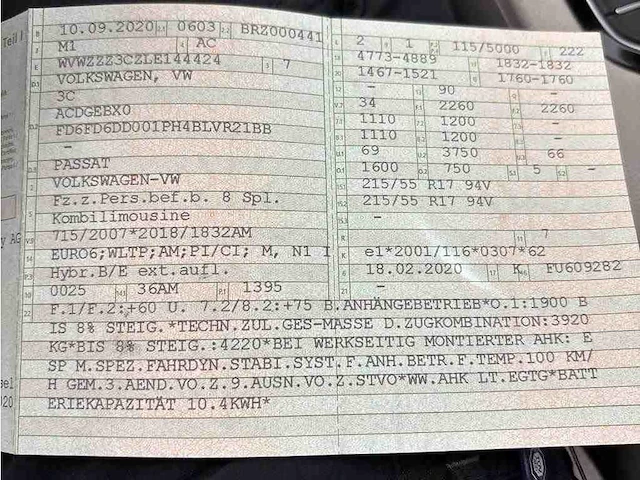 Teil I
B 10.09.2020 2.1 0603 2.2 BRZ000441
J M1 4 AC
E WVWZZZ3CZLE144424 3 7
D.1 VOLKSWAGEN, VW
3C
D.2 ACDGEBX0
FD6FD6DD001PH4BLVR21BB
-
D.3 PASSAT
2 VOLKSWAGEN-VW
5 Fz.z.Pers.bef.b. 8 Spl.
Kombilimousine
V.9 715/2007*2018/1832AM
14 EURO6;WLTP;AM;PI/CI; M, N1 I
P.3 Hybr.B/E ext.aufl.
10 0025 14.1 36AM P.1 1395
L 2 9 1 P.2 P.4 115/5000 T 222
18 4773-4889 19 1832-1832
20 1467-1521 G 1760-1760
12 - 13 90 Q -
V.7 34 F.1 2260 F.2 2260
7.1 1110 7.2 1200 7.3 -
8.1 1110 8.2 1200 8.3 -
U.1 69 U.2 3750 U.3 66
O.1 1600 O.2 750 S.1 5 S.2 -
15.1 215/55 R17 94V
15.2 215/55 R17 94V
15.3 -
R 11 7
K e1*2001/116*0307*62
6 18.02.2020 17 K 16 FU609282
21 -
22 F.1/F.2:+60 U. 7.2/8.2:+75 B.ANHÄNGEBETRIEB*O.1:1900 B
IS 8% STEIG.*TECHN.ZUL.GES-MASSE D.ZUGKOMBINATION:3920
KG*BIS 8% STEIG.:4220*BEI WERKSEITIG MONTIERTER AHK: E
SP M.SPEZ.FAHRDYN.STABI.SYST.F.ANH.BETR.F.TEMP.100 KM/
H GEM.3.AEND.VO.Z.9.AUSN.VO.Z.STVO*WW.AHK LT.EGTG*BATT
ERIEKAPAZITÄT 10.4KWH*